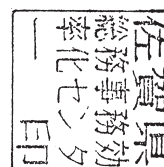 佐賀県
総務事務効
率化センタ
ー印